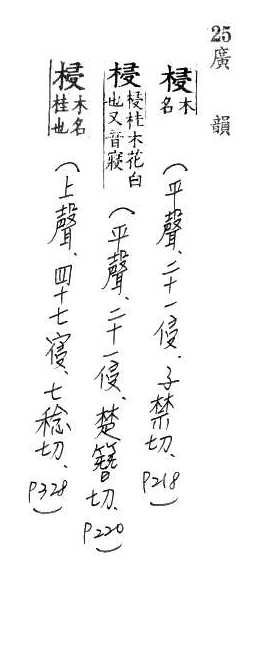 25 廣韻
梫木名(平聲、二十一侵、子禁切、P218)
梫梫木花白也又音寑(平聲、二十一侵、楚簪切、P220)
梫木名桂也(上聲、四十七寑、七稔切、P328)